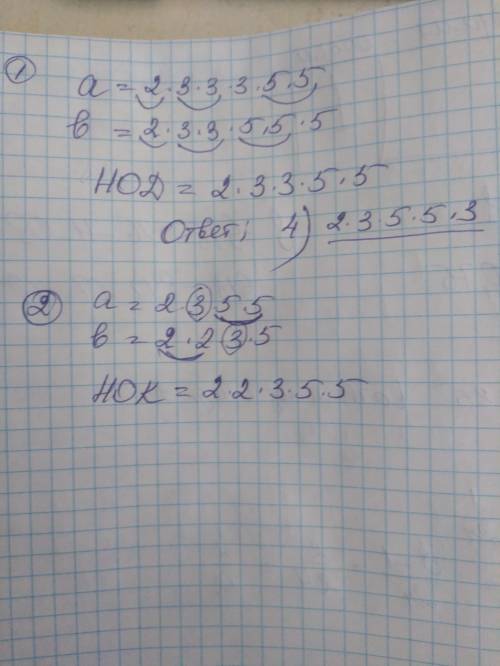 1
a = 2·3·3·3·5·5
b = 2·3·3·5,5·5
НОД = 2·3·3·5·5
Ответ; 4) 2·3·5·5·3
2
a = 2 3 5 5
b = 2·2 3·5
НОК = 2·2·3·5·5